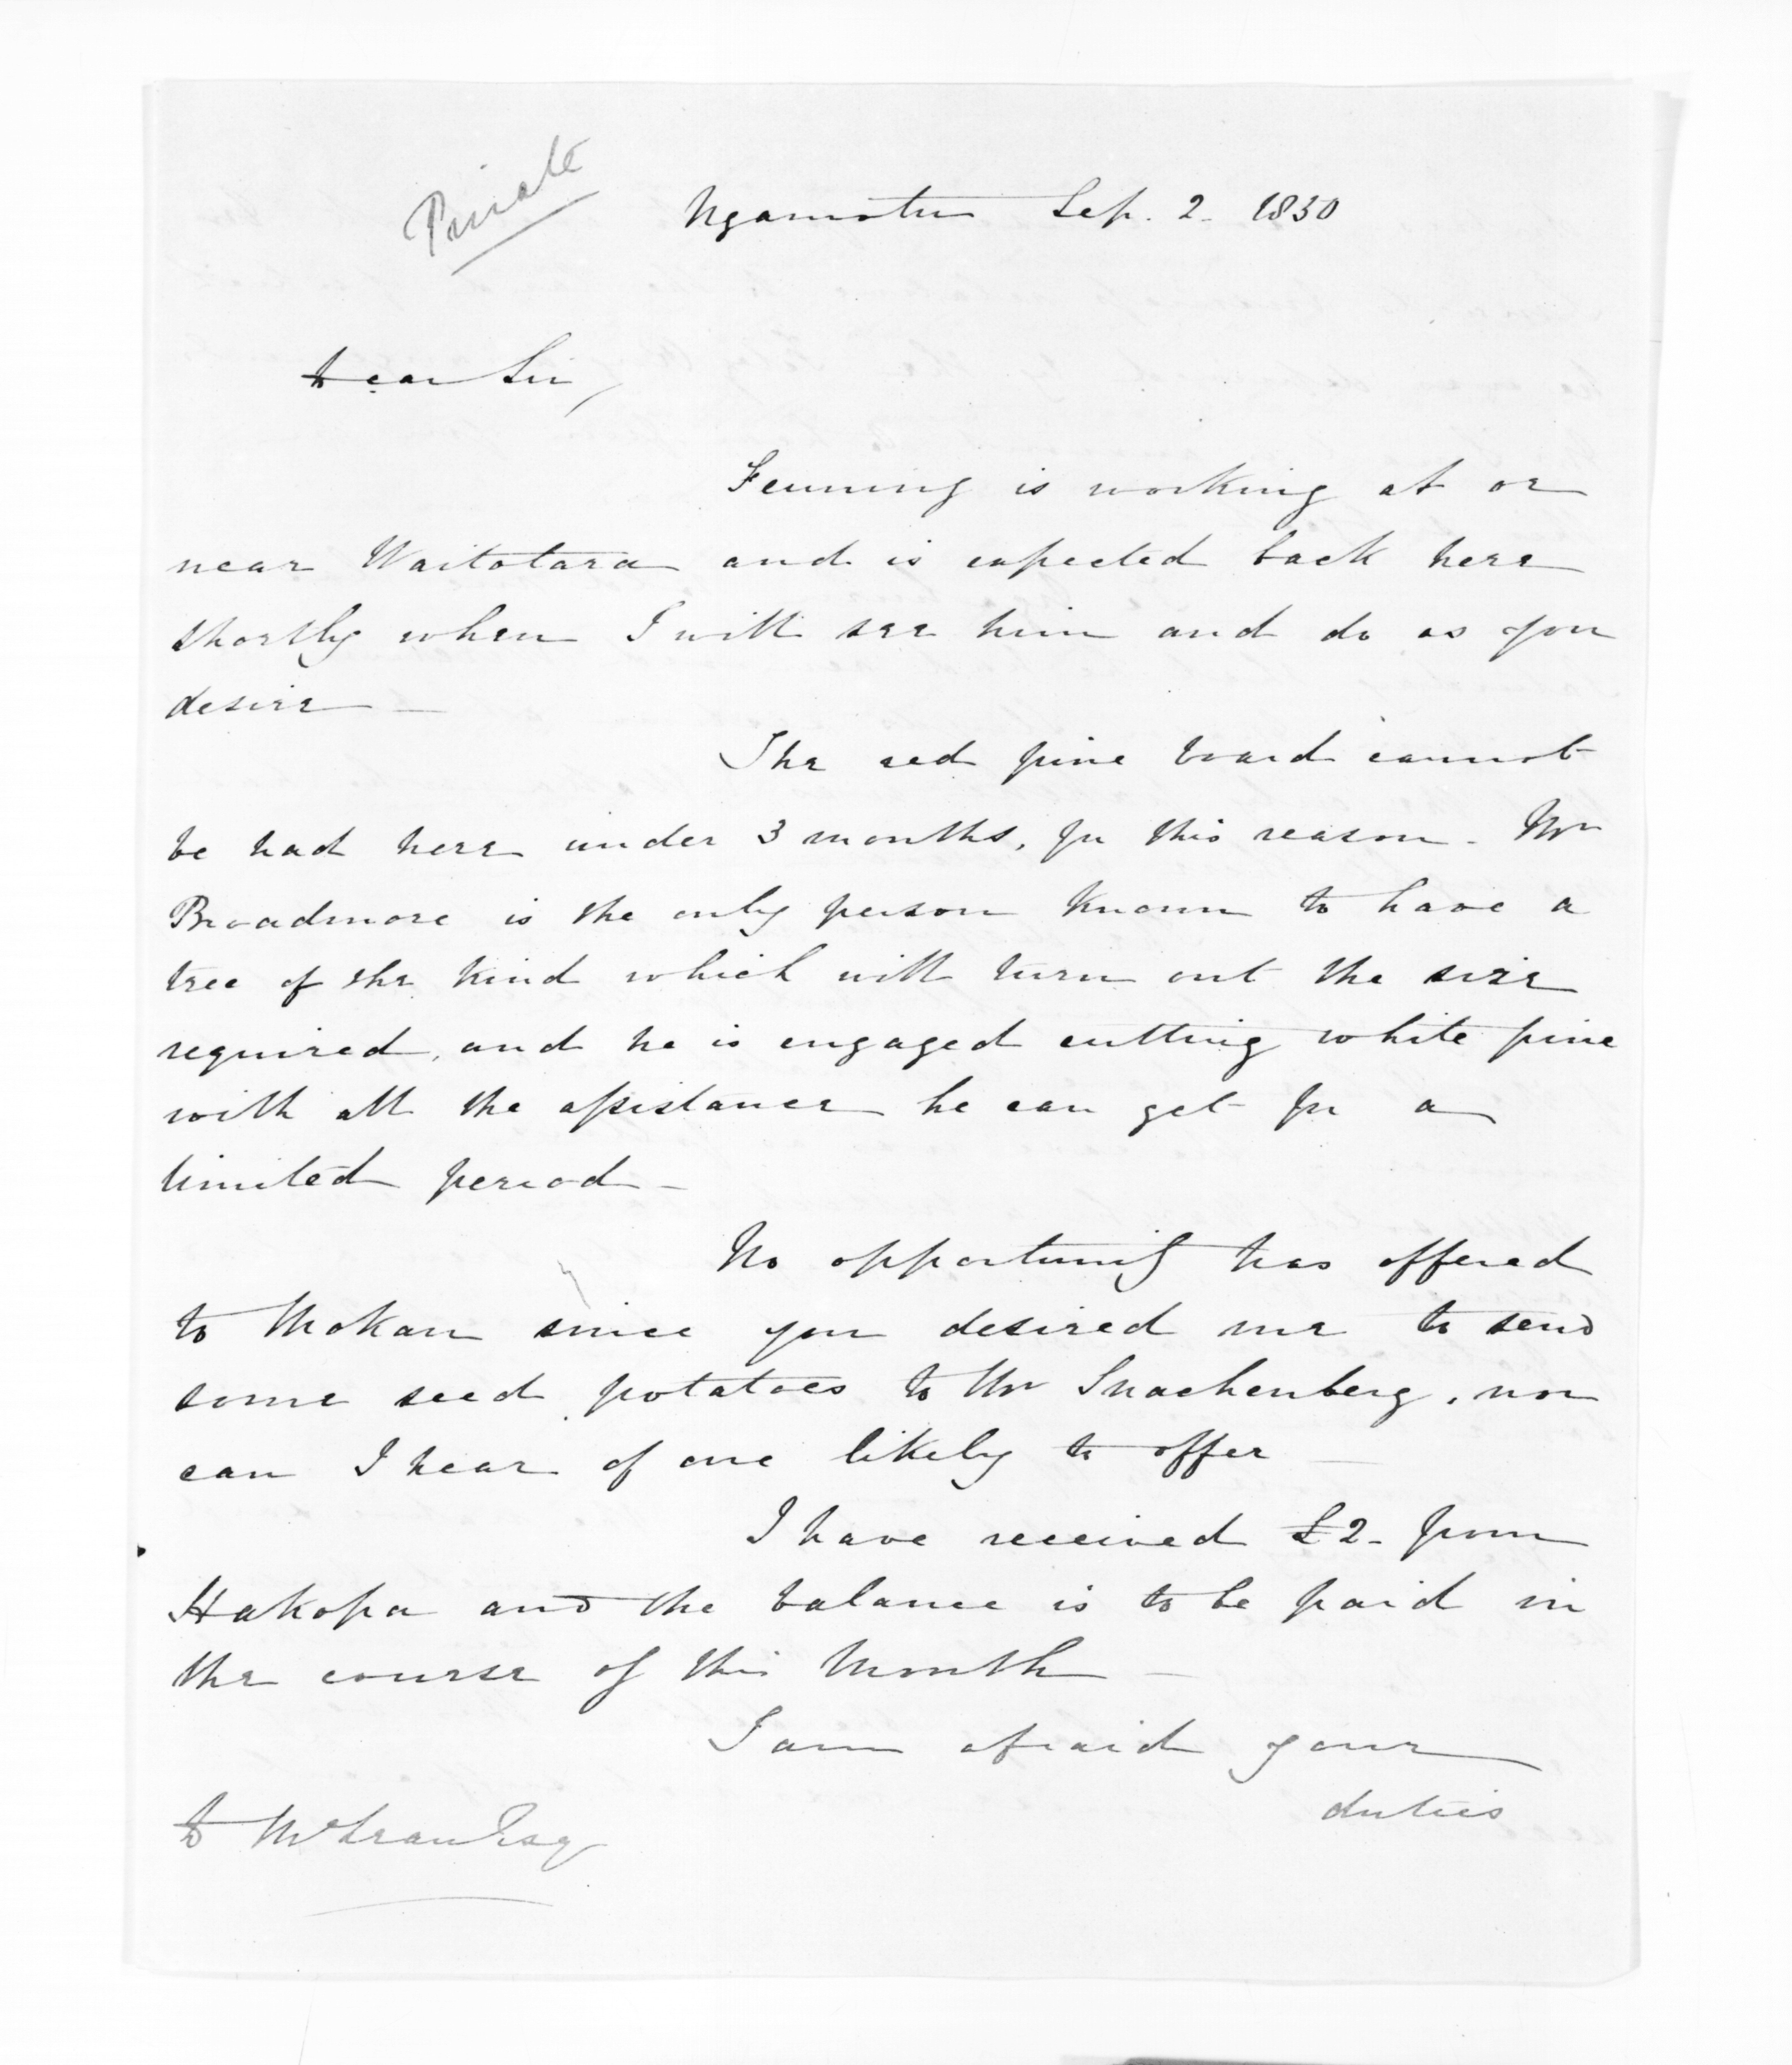 Private
Ngamotu Sep. 2. 1850
Dear Sir,
Fenning is working at or
near Waitotara and is expected back here
shortly when I will see him and do as you
desire —
The red pine board cannot
be had here under 3 months, for this reason. Mr
Broadmore is the only person known to have a
tree of the kind which will turn out the size
required, and he is engaged cutting white pine
with all the assistance he can get for a
limited period —
No opportunity has offered
to Mokau since you desired me to send
some seed potatoes to Mr Snachenberg, nor
can I hear of one likely to offer —
I have received £2 - from
Hakopa and the balance is to be paid in
the course of this Month —
I am afraid your
duties
D McLean Esq